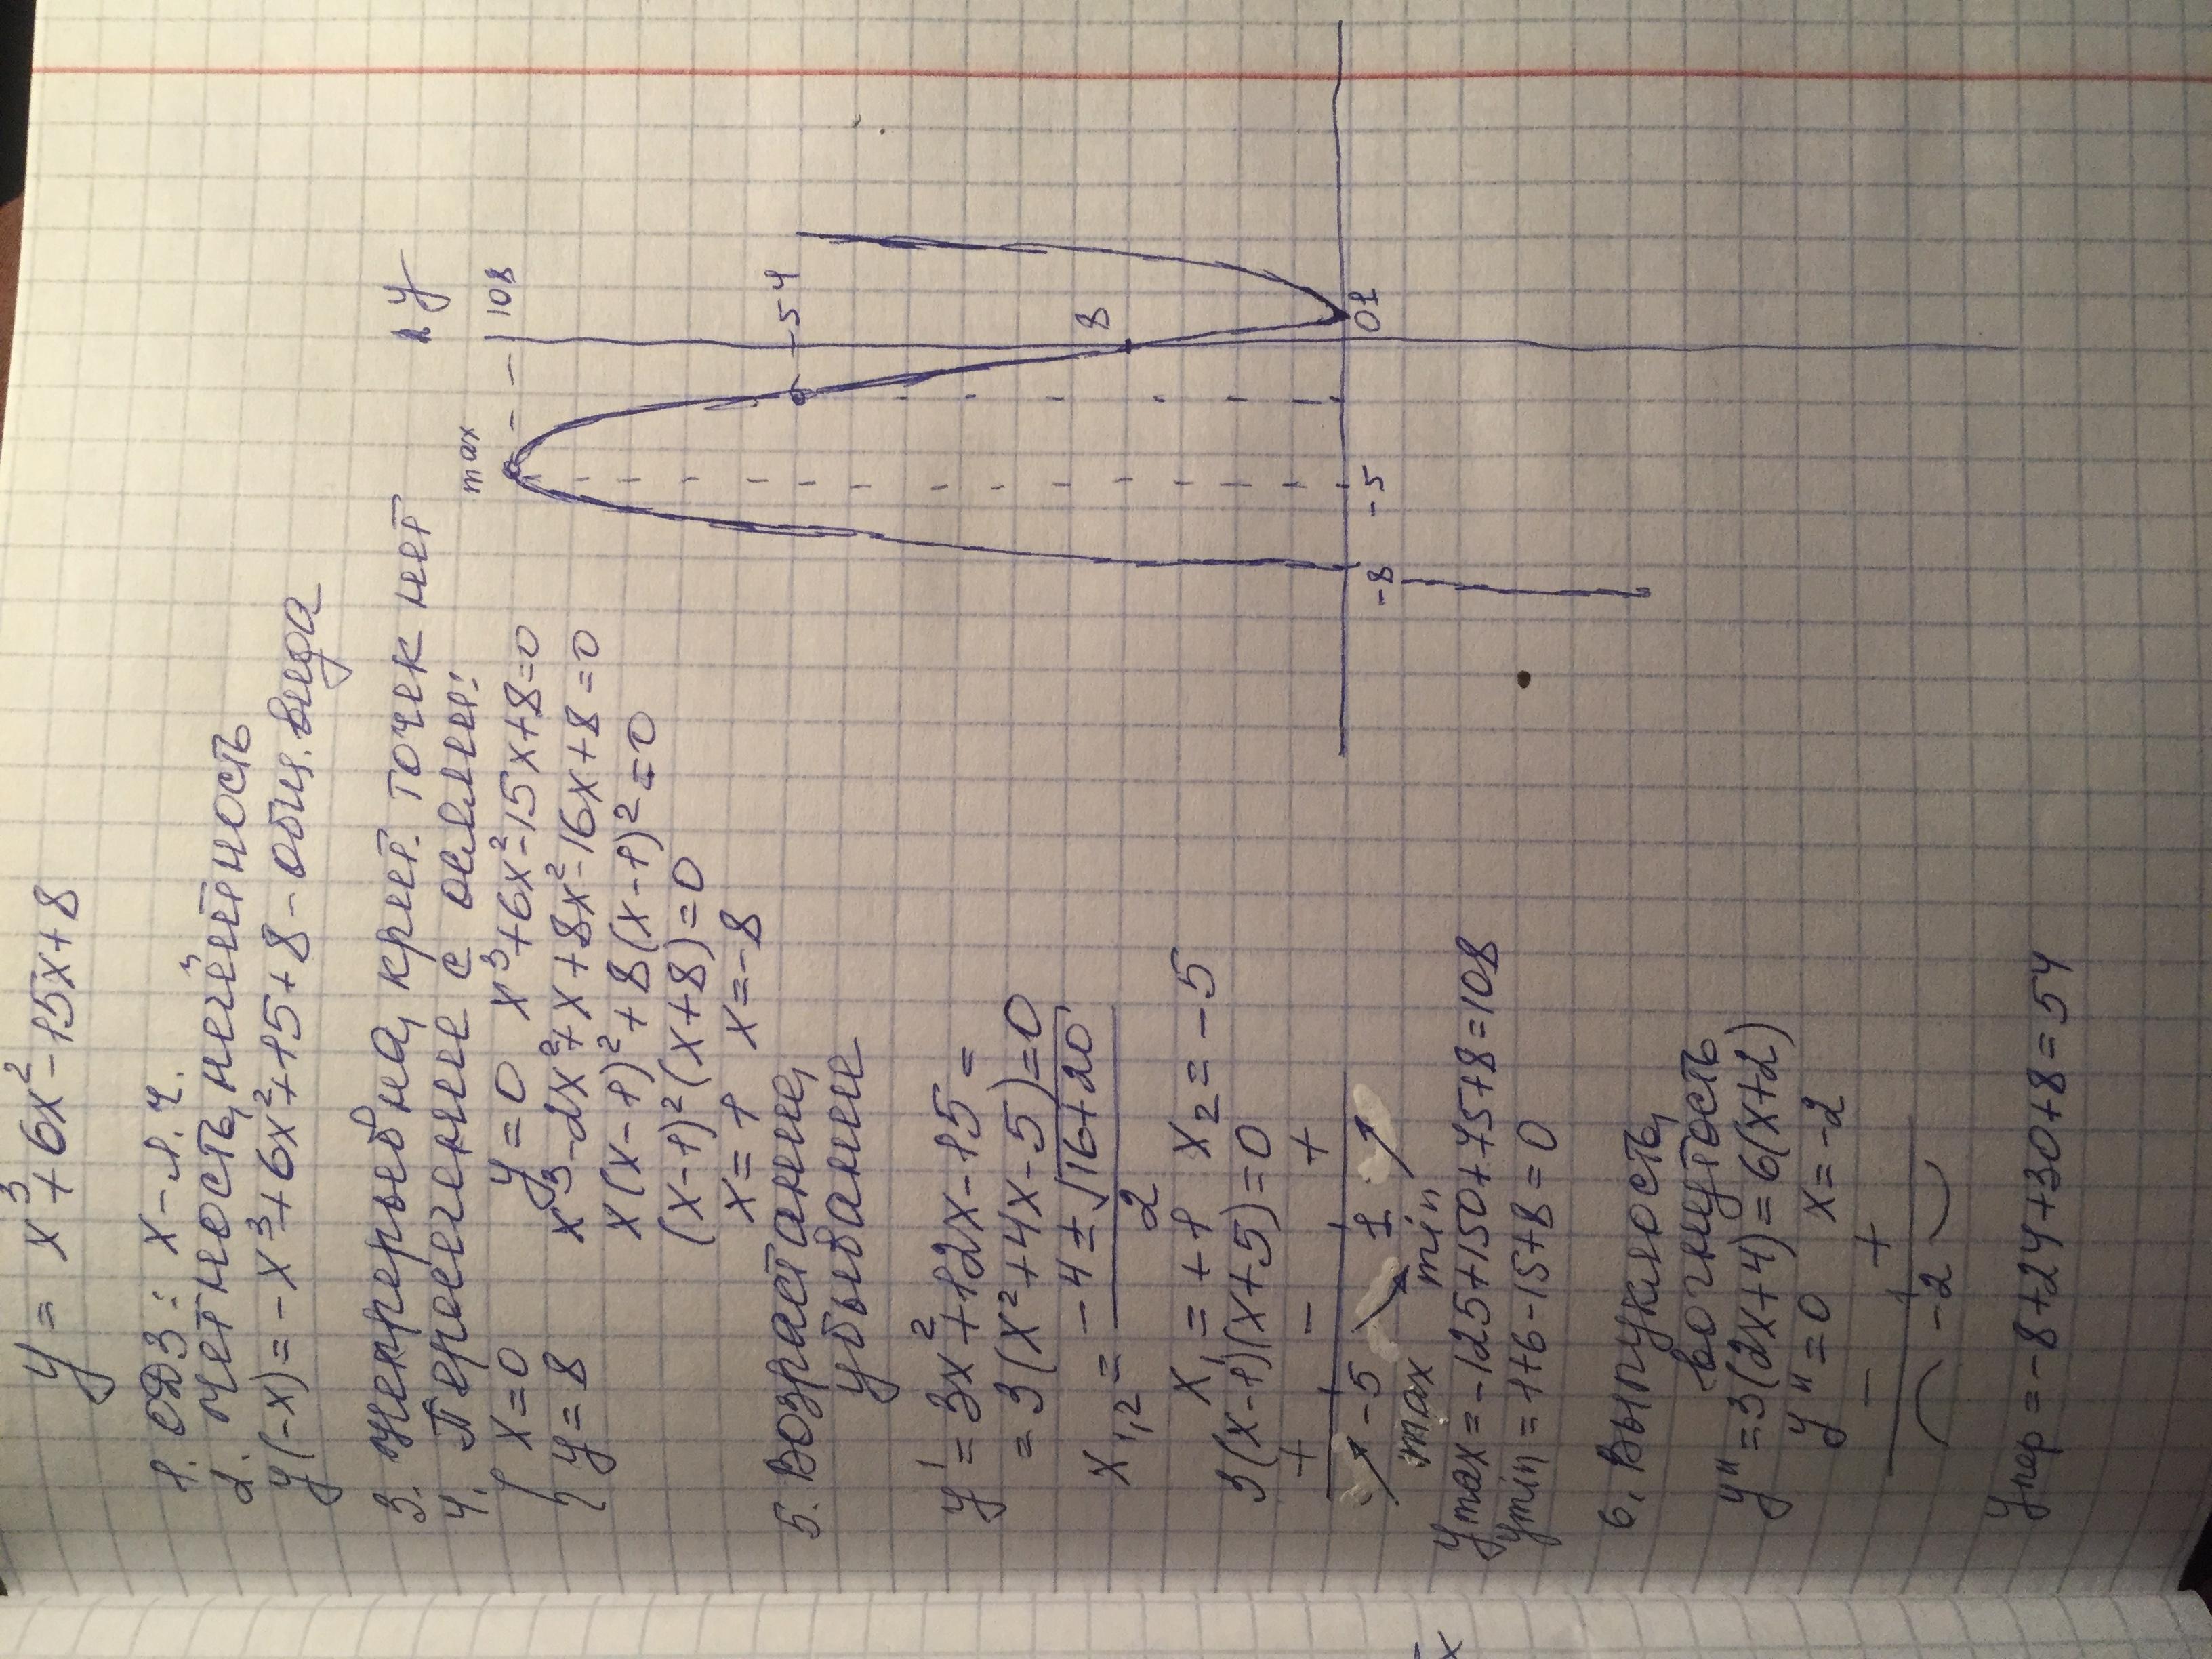 y = x³+6x²-15x+8
1. ОДЗ: x-л.ч.
2. Четность, нечётность
y(-x)=-x³+6x²+15+8-общ.вида
3. Непрерывна, крит. точек нет
4. Пересечение с осями:
{ x=0
y=8
y=0 x³+6x²-15x+8=0
x³-2x²+x+8x²-16x+8=0
x(x-1)²+8(x-1)²=0
(x-1)²(x+8)=0
x=1 x=-8
5. Возрастание,
убывание
y'=3x²+12x-15=
=3(x²+4x-5)=0
x₁,₂= (-4±√16+20)/2
x₁=+1 x₂=-5
3(x-1)(x+5)=0
+ - +
-5 1
max min
ymax=-125+150+75+8=108
ymin=1+6-15+8=0
6. Выпуклость,
вогнутость
y"=3(2x+4)=6(x+2)
y"=0 x=-2
- +
-2
yпер=-8+24+30+8=54
y
max
108
-54
8
-8
-5
01